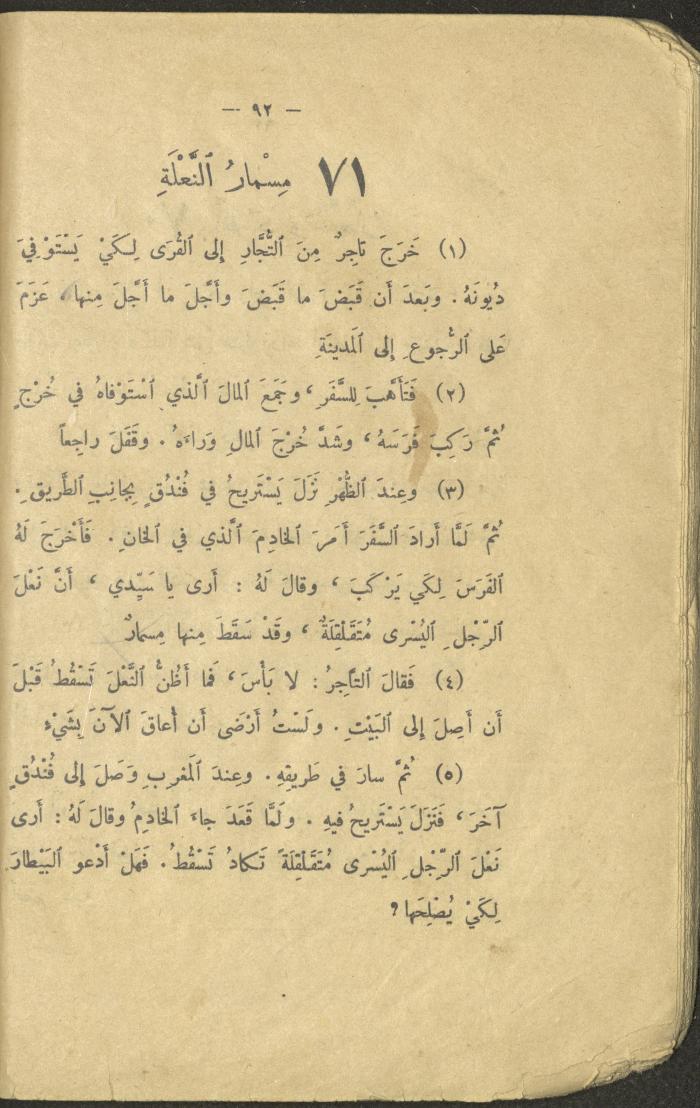 — ٩٢ —
٧١ مِسْمارُ ٱلنَّعْلَةِ
(١) خَرَجَ تاجِرٌ مِنَ ٱلتُّجَّارِ إِلى ٱلقُرَى لِكَيْ يَسْتَوْفِيَ
دُيُونَهُ. وبَعدَ أَن قَبَضَ ما قَبَضَ وأَجَّلَ ما أَجَّلَ مِنها، عَزَمَ
عَلى ٱلرُّجوعِ إِلى ٱلمَدينَةِ
(٢) فَتَأَهَّبَ لِلسَّفَرِ، وجَمَعَ ٱلمالَ ٱلَّذي ٱسْتَوْفاهُ في خُرْجٍ
ثُمَّ رَكِبَ فَرَسَهُ، وشَدَّ خُرْجَ ٱلمالِ وَراءَهُ. وقَفَلَ راجِعاً
(٣) وعِندَ ٱلظُّهْرِ نَزَلَ يَسْتَريحُ في فُنْدُقٍ بِجانِبِ ٱلطَّريقِ.
ثُمَّ لَمَّا أَرادَ ٱلسَّفَرَ أَمَرَ ٱلخادِمَ ٱلَّذي في ٱلخانِ. فَأَخْرَجَ لَهُ
ٱلفَرَسَ لِكَي يَرْكَبَ، وقالَ لَهُ : أَرى يا سَيِّدي، أَنَّ نَعْلَ
ٱلرِّجْلِ ٱليُسْرى مُتَقَلْقِلَةٌ، وقَدْ سَقَطَ مِنها مِسمارٌ
(٤) فَقالَ ٱلتَّاجِرُ : لا بَأْسَ، فَما أَظُنُّ ٱلنَّعْلَ تَسْقُطُ قَبْلَ
أَن أَصِلَ إِلى ٱلبَيْتِ. ولَسْتُ أَرْضَى أَن أُعاقَ ٱلآنَ بِشَيْءٍ
(٥) ثُمَّ سارَ في طَريقِهِ. وعِندَ ٱلمَغرِبِ وَصَلَ إِلى فُنْدُقٍ
آخَرَ، فَنَزَلَ يَسْتَريحُ فيهِ. ولَمَّا قَعَدَ جاءَ ٱلخادِمُ وقالَ لَهُ : أَرى
نَعْلَ ٱلرِّجْلِ ٱليُسْرى مُتَقَلْقِلَةً تَكادُ تَسْقُطُ. فَهَلْ أَدْعو ٱلبَيْطارَ
لِكَيْ يُصْلِحَها؟